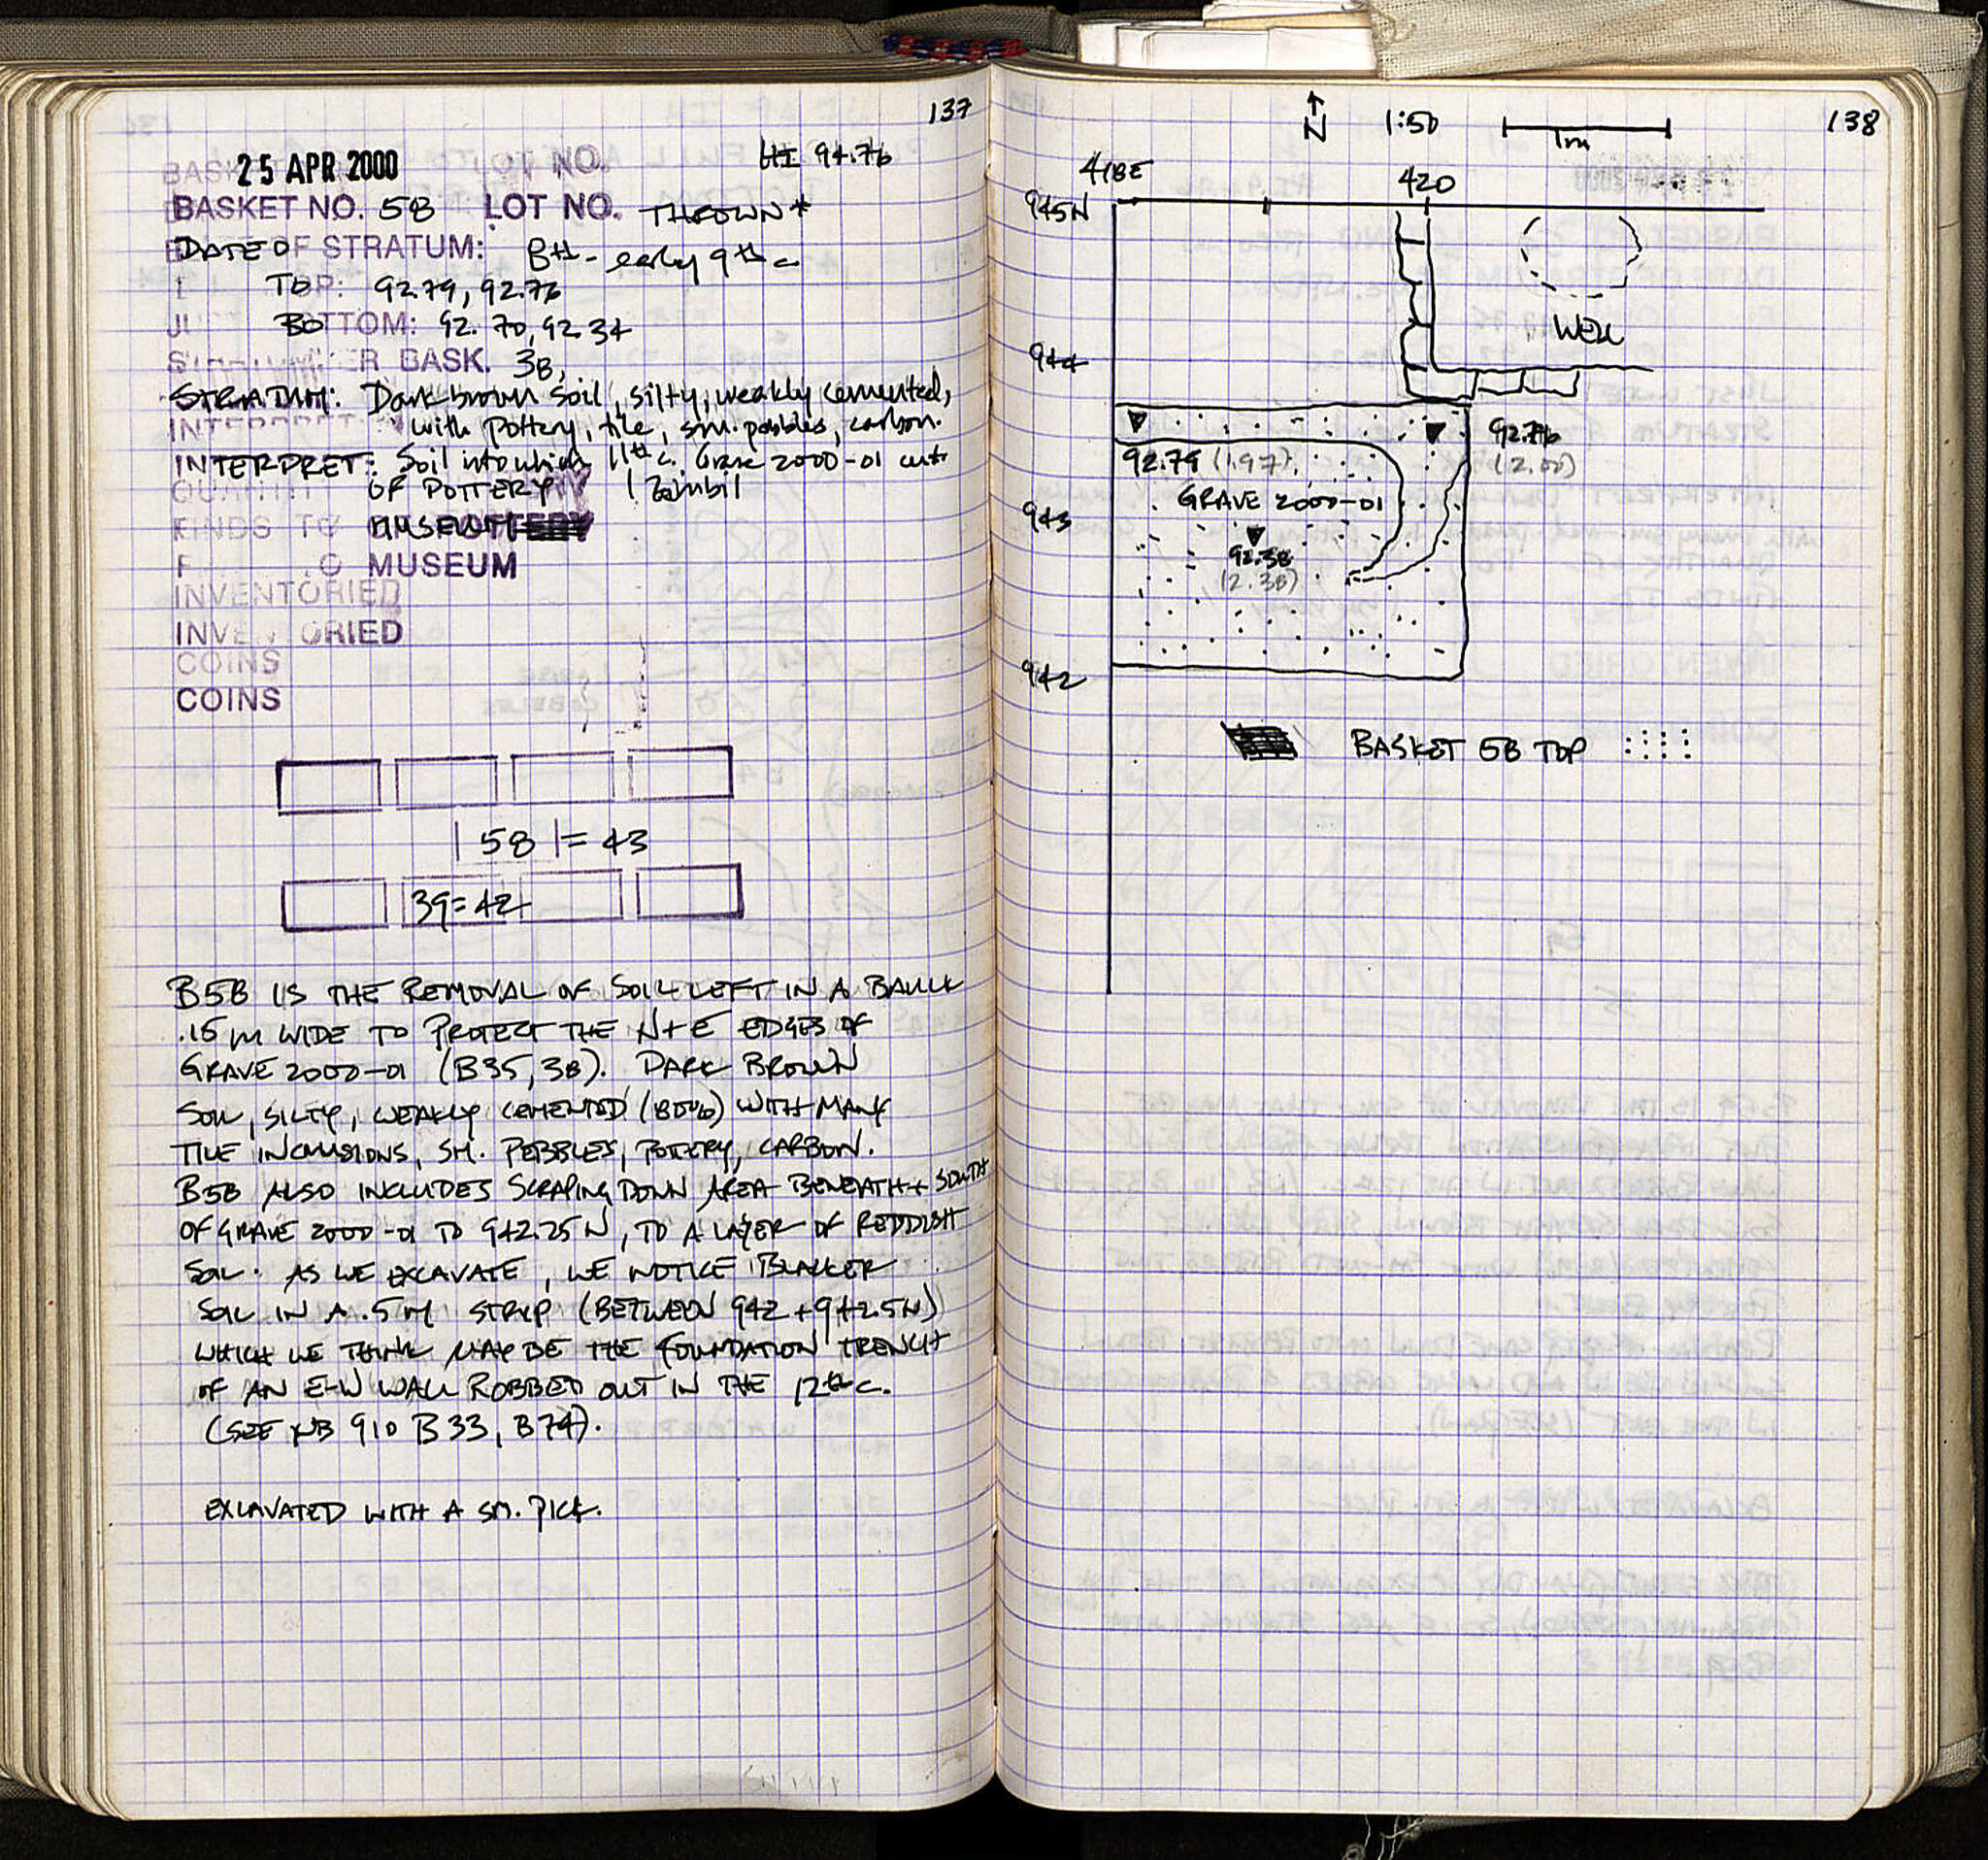 137
25 APR 2000
HI 94.76
BASKET NO. 58 LOT NO. THROWN*
DATE OF STRATUM: 8th - early 9th c
TOP: 92.79, 92.76
BOTTOM: 92.70, 92.34
BASK. 38,
STRATUM: Dark brown soil, silty, weakly cemented,
with pottery, tile, sm. pebbles, carbon.
INTERPRET: Soil into which 11th c. Grave 2000-01 cut
OF POTTERY 1 zimbil
FINDS TO MUSEUM
MUSEUM
INVENTORIED
INVENTORIED
COINS
COINS
58 = 43
39=42
B58 IS THE REMOVAL OF SOIL LEFT IN A BAULK
.15 m WIDE TO PROTECT THE N+E EDGES OF
GRAVE 2000-01 (B35, 38). DARK BROWN
SOIL, SILTY, WEAKLY CEMENTED (80%) WITH MANY
TILE INCLUSIONS, SM. PEBBLES, POTTERY, CARBON.
B58 ALSO INCLUDES SCRAPING DOWN AREA BENEATH + SOUTH
OF GRAVE 2000-01 TO 942.25 N, TO A LAYER OF REDDISH
SOIL. AS WE EXCAVATE, WE NOTICE BLACKER
SOIL IN A .5M STRIP (BETWEEN 942 + 942.5N)
WHICH WE THINK MAY BE THE FOUNDATION TRENCH
OF AN E-W WALL ROBBED OUT IN THE 12th c.
(SEE NB 910 B33, B74).
EXCAVATED WITH A SM. PICK.
138
N 1:50 1m
418E 420
945N
WELL
944
92.76
(2.00)
92.79 (1.97)
GRAVE 2000-01
943
92.38
(2.38)
942
BASKET 58 TOP